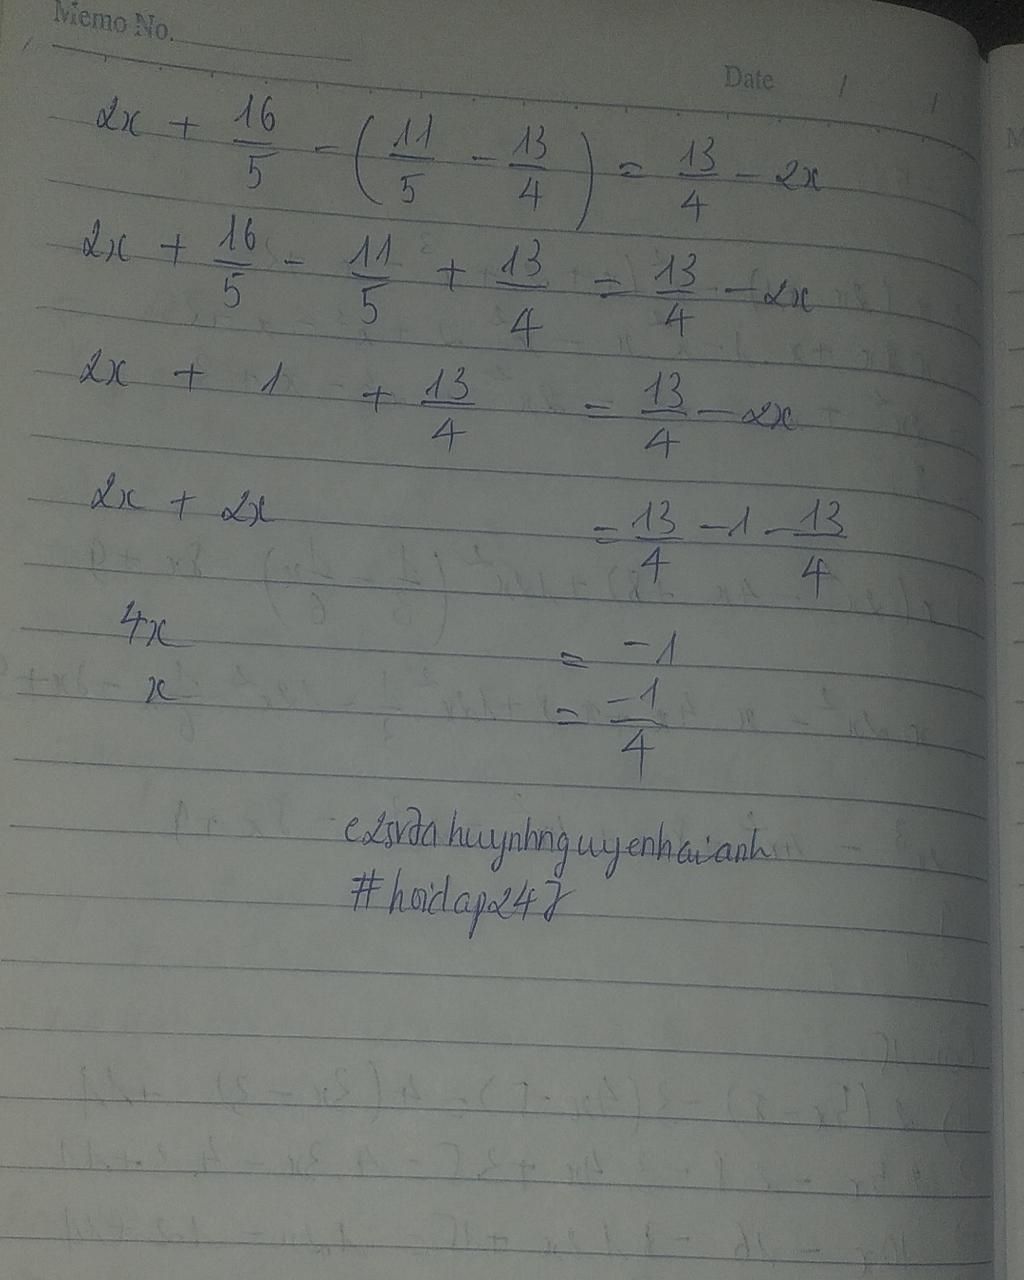 Memo No.
Date / /
2x + 16/5 - (11/5 - 13/4) = 13/4 - 2x
2x + 16/5 - 11/5 + 13/4 = 13/4 - 2x
2x + 1 + 13/4 = 13/4 - 2x
2x + 2x = 13/4 - 1 - 13/4
4x = -1
x = -1/4
huynhnguyenhaianh
#hoidap247